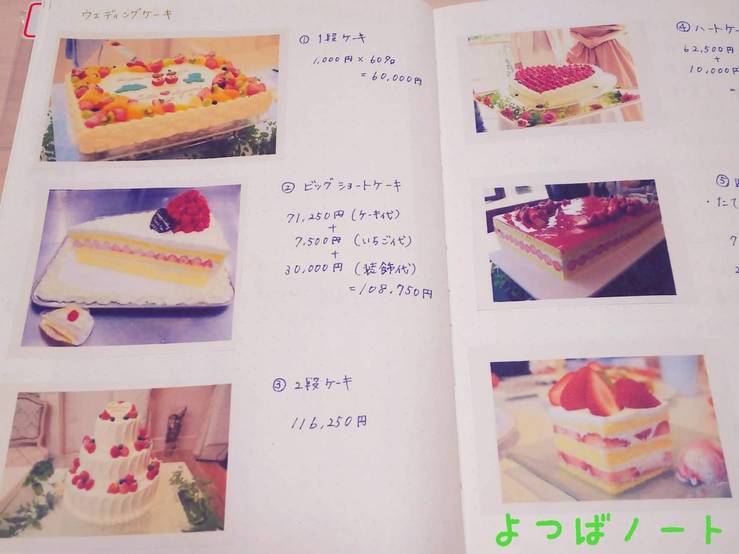 ウェディングケーキ
① 1段ケーキ
1,000円 × 60名
= 60,000円
② ビッグショートケーキ
71,250円 (ケーキ代)
+
7,500円 (いちご代)
+
30,000円 (装飾代)
= 108,750円
③ 2段ケーキ
116,250円
④ ハートケー
62,500円
+
10,000円
=
⑤
・たて
7
よつばノート